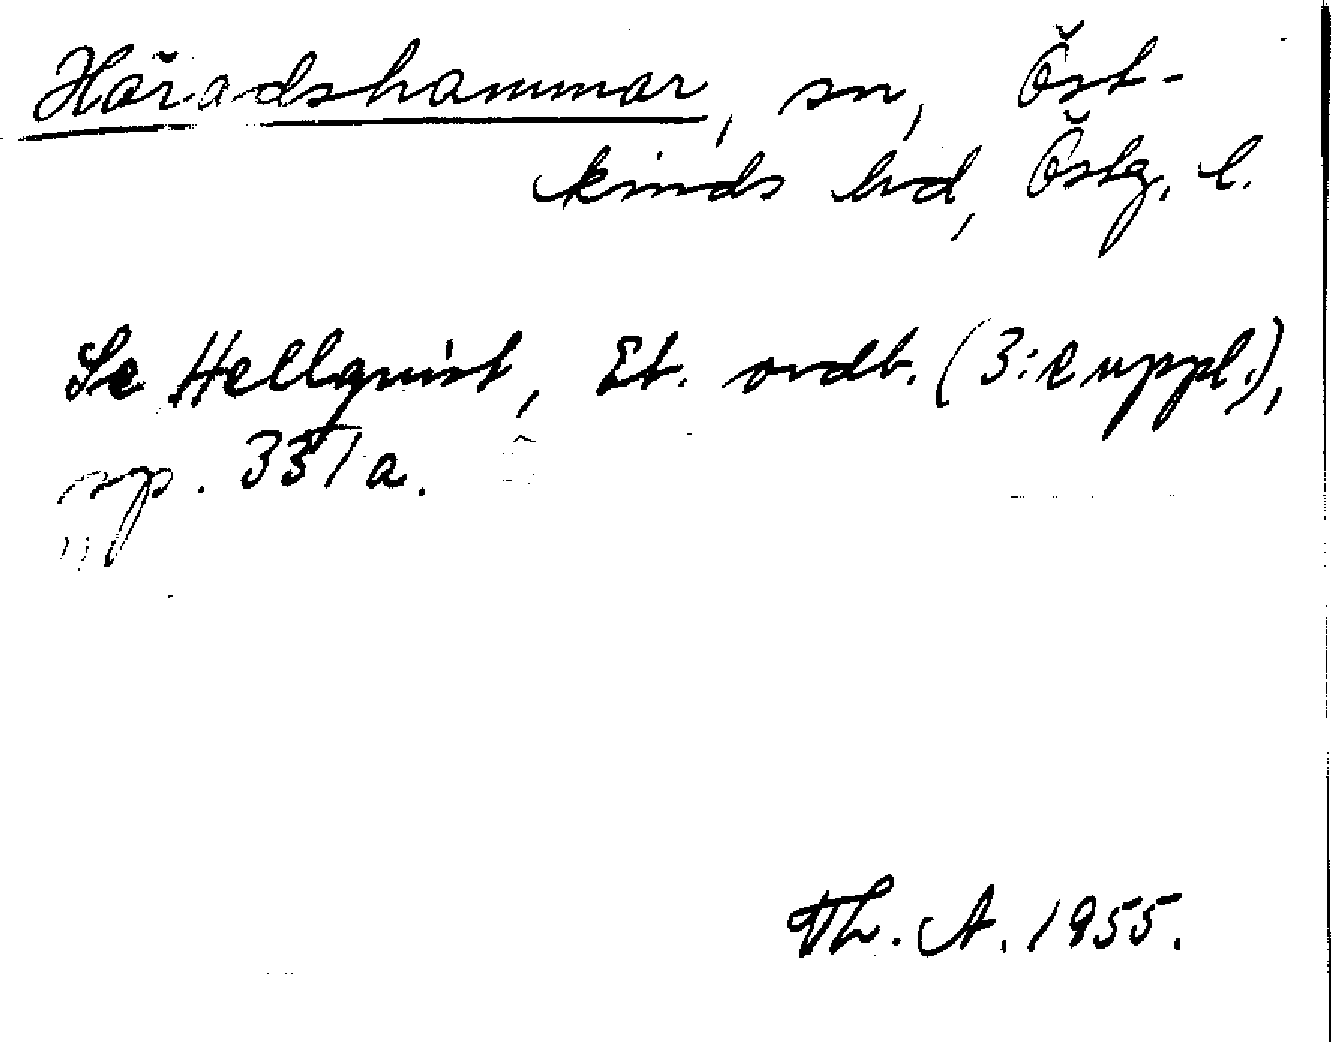 Häradshammar, sn, Öst-
kinds hd, Östg. l.
Se Hellquist, Et. ordb. (3:e uppl.),
sp. 331 a.
Th. A. 1955.